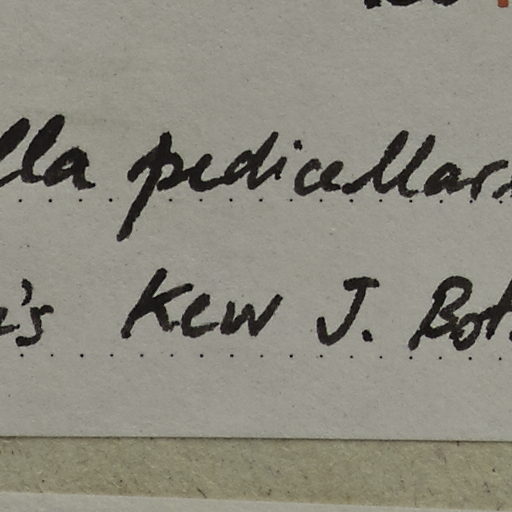 lla pedicellar
's Kew J. Bot.